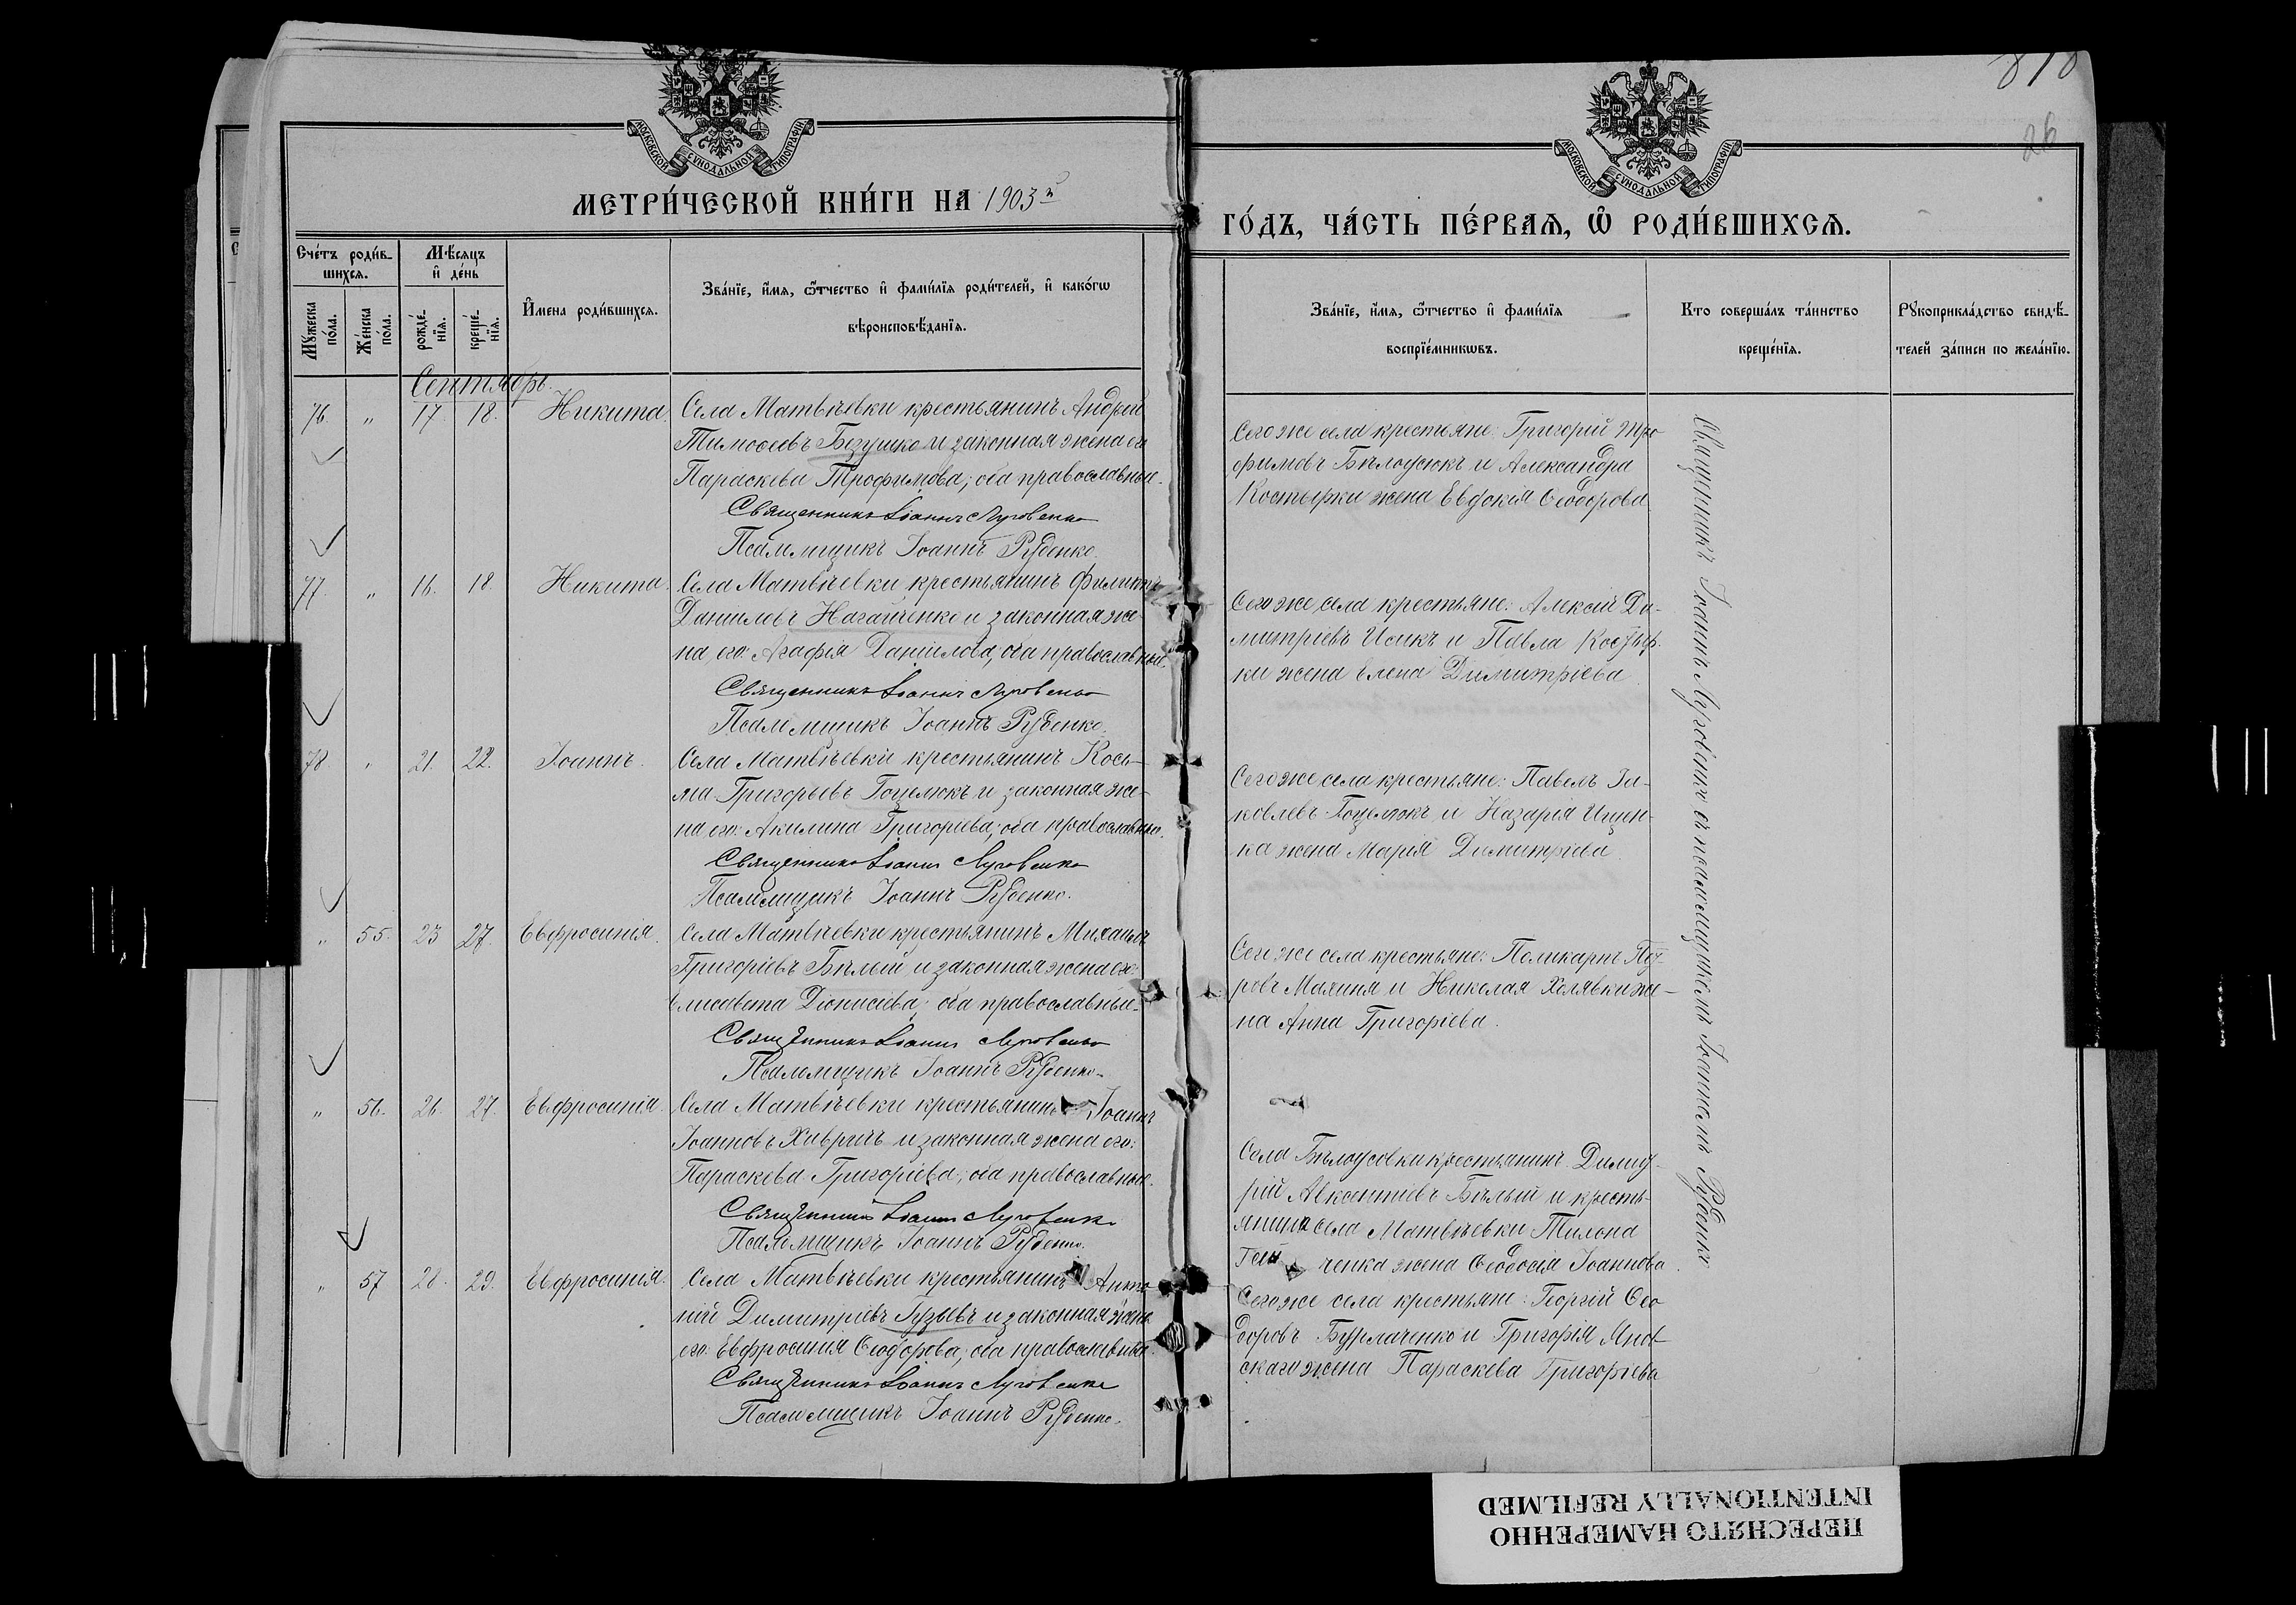 818
26
МОСКОВСКОЙ СУНОДАЛЬНОЙ ТИПОГРАФІИ
МОСКОВСКОЙ СУНОДАЛЬНОЙ ТИПОГРАФІИ
МЕТРИ́ЧЕСКОЙ КНИ́ГИ НА 1903й
ГО́ДЪ, ЧА́СТЬ ПЕ́РВАѦ, Ѽ РОДИ́ВШИХСѦ.
Сче́тъ роди́в-
шихсѧ.
Мѣ́сѧцъ
и҆ де́нь
Мꙋжеска по́ла.
Же́нска по́ла.
рожде́-
нїѧ.
креще́-
нїѧ.
И҆мена роди́вшихсѧ.
Зва́нїе, и҆́мѧ, ѻ҆́тчество и҆ фами́лїѧ роди́телей, и҆ како́гѡ
вѣроисповѣ́данїѧ.
Зва́нїе, и҆́мѧ, ѻ҆́тчество и҆ фами́лїѧ
воспрїе́мникѡвъ.
Кто соверша́лъ та́инство
креще́нїѧ.
Рꙋкоприкла́дство свидѣ́-
телей за́писи по жела́нїю.
Сентябрь.
76. " 17. 18. Никита. Села Матвѣевки крестьянинъ Андрей
Тимоѳеевъ Безушко и законная жена его
Параскева Трофимова; оба православные.
Священникъ Іоаннъ Луговенко
Псаломщикъ Іоаннъ Рубенко.
Сего же села крестьяне: Григорій Тро
фимовъ Бѣлоусюкъ и Александра
Костырки жена Евдокія Ѳеодорова
77. " 16. 18. Никита. Села Матвѣевки крестьянинъ Филиппъ
Даниловъ Нагайченко и законная же-
на его: Агафія Даніилова, оба православные.
Священникъ Іоаннъ Луговенко
Псаломщикъ Іоаннъ Рубенко.
Сего же села крестьяне: Алексій Ди-
митріевъ Исикъ и Павла Костыр-
ки жена Елена Димитріева
78 " 21. 22. Іоаннъ. Села Матвѣевки крестьянинъ Кось-
ма Григорьевъ Гоцелюкъ и законная же-
на его: Акилина Григоріева; оба православные.
Священникъ Іоаннъ Луговенко
Псаломщикъ Іоаннъ Рубенко.
Сего же села крестьяне: Павелъ Іа-
ковлевъ Гоцелюкъ и Назарія Ищен-
ка жена Марія Димитріева
" 55. 23 27. Евфросинія. Села Матвѣевки крестьянинъ Михаилъ
Григоріевъ Бѣлый и законная жена его:
Елисавета Діонисіева; оба православные.
Священникъ Іоаннъ Луговенко
Псаломщикъ Іоаннъ Рубенко.
Сего же села крестьяне: Поликарпъ Пет-
ровъ Махиня и Николая Холявки же-
на Анна Григоріева.
" 56. 26. 27. Евфросинія. Села Матвѣевки крестьянинъ Іоаннъ
Іоанновъ Хивричъ и законная жена его:
Параскева Григоріева; оба православные.
Священникъ Іоаннъ Луговенко
Псаломщикъ Іоаннъ Рубенко.
Села Бѣлоусовки крестьянинъ Димит-
рій Авксентіевъ Бѣлый и кресть-
янина села Матвѣевки Тимона
ченка жена Ѳеодосія Іоаннова.
" 57 28. 29. Евфросинія. Села Матвѣевки крестьянинъ Анто-
ній Димитріевъ Гузывъ и законная жена
его: Евфросинія Ѳеодорова; оба православные.
Священникъ Іоаннъ Луговенко
Псаломщикъ Іоаннъ Рубенко.
Сего же села крестьяне: Георгій Ѳео
доровъ Бурлаченко и Григорія
скаго жена Параскева Григорьева
Священникъ Іоаннъ Луговенко съ псаломщикомъ Іоанномъ Рубенко.
ПЕРЕСНЯТО НАМЕРЕННО
INTENTIONALLY REFILMED